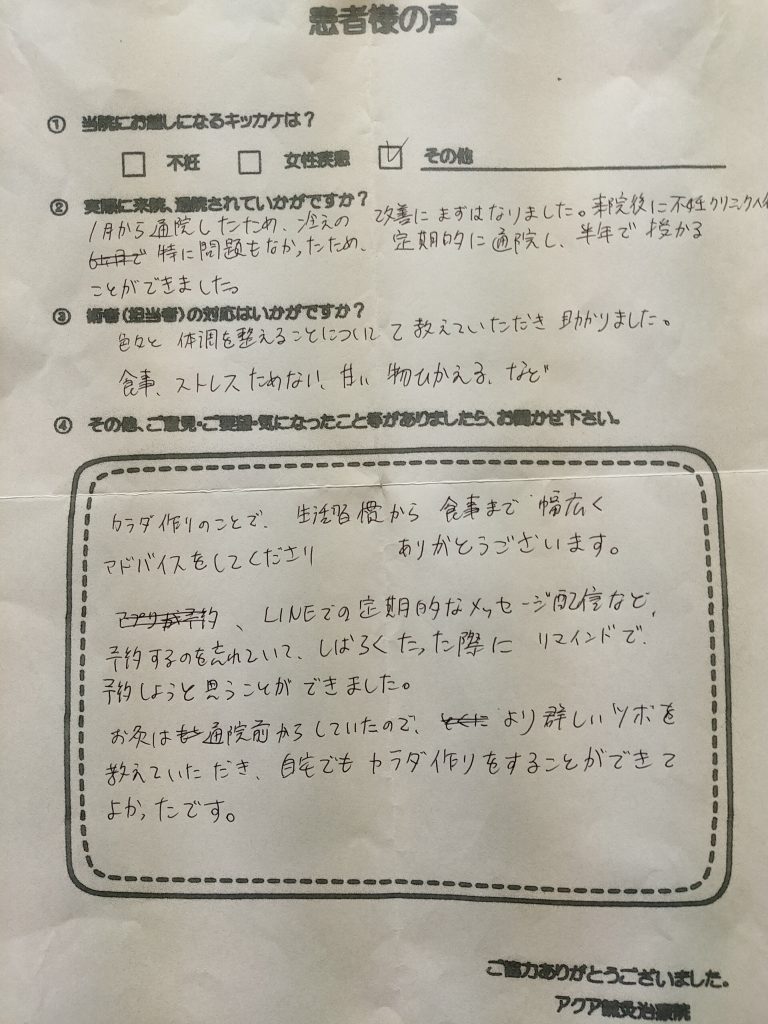 患者様の声
① 当院にお越しになるキッカケは？
□ 不妊 □ 女性疾患 ☑ その他
② 実際に来院、通院されていかがですか？
1月から通院したため、冷えの改善にまずはなりました。来院後に不妊クリニックへ
特に問題もなかったため、定期的に通院し、半年で授かる
ことができました。
③ 術者（担当者）の対応はいかがですか？
色々と体調を整えることについてて教えていただき助かりました。
食事、ストレスためない、甘い物ひかえる、など
④ その他、ご意見・ご要望・気になったこと等がありましたら、お聞かせ下さい。
カラダ作りのことで、生活習慣から食事まで幅広く
アドバイスをしてくださり ありがとうございます。
予約、LINEでの定期的なメッセージ配信など、
予約するのを忘れていて、しばらくたった際にリマインドで、
予約しようと思うことができました。
お灸は通院前からしていたので、より詳しいツボを
教えていただき、自宅でもカラダ作りをすることができて
よかったです。
ご協力ありがとうございました。
アクア鍼灸治療院